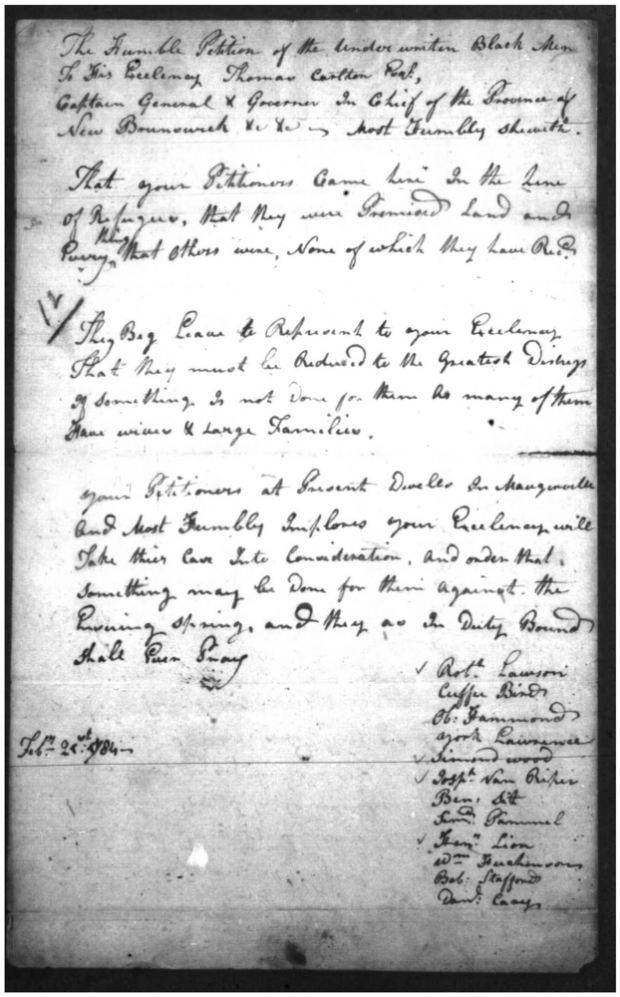 The Humble Petition of the Underwriten Black Men
To His Excelency Thomas Carlton Esqr,
Captain General & Governer In Chief of the Province of
New Brunswick &c &c Most Humbly sheweth.
That your Petitioners Came here In the Line
of Refugees, that they were Promised Land and
Every thing that Others were, None of which they have Recd.
They Beg Leave to Represent to your Excelency
That they must be Reduced to the Greatest Distress
If something Is not Done for them As many of them
Have wives & Large Families.
your Petitioners at Present Dwells In Maugerville
And Most Humbly Implores your Excelency will
Take thier Case Into Consideration, and order that
something may be Done for them Against the
Ensuing spring, and they as In Duty Bound
shall Ever Pray
Robt. Lawson
Cuffee Bird
Ob: Hammond
York Lawrence
Feby. 1784
Simond wood
Josph. Van Riper
Ben:
Pammel
Heny. Lion
Wm. Huchenson
Bob: Stafford
Danl.